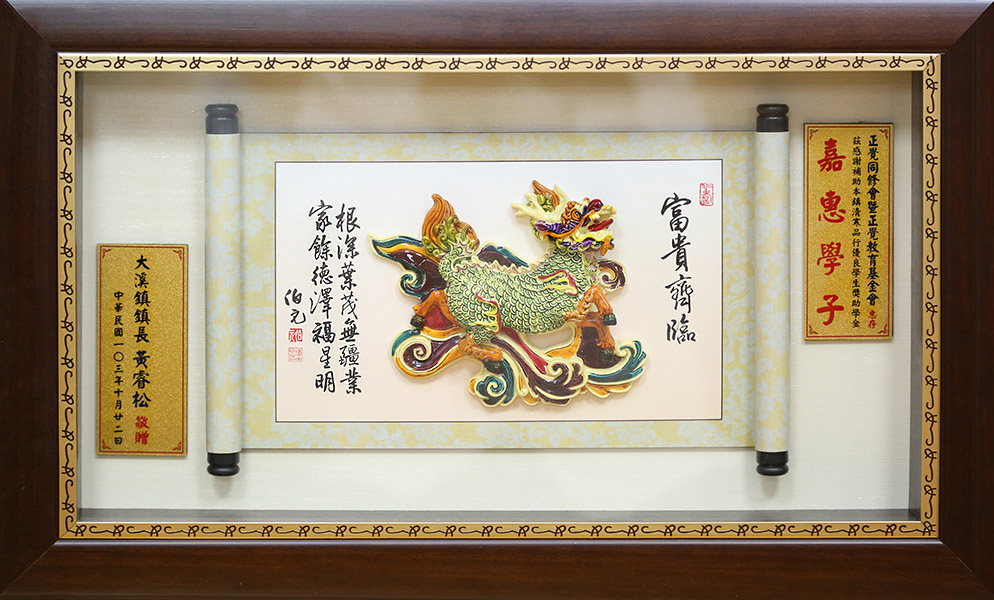 正覺同修會暨正覺教育基金會 惠存
茲感謝補助本鎮清寒品行優良學生獎助學金
嘉惠學子
富貴齊臨
根深葉茂無疆業
家餘德澤福星明
伯元
大溪鎮鎮長 黃睿松 敬贈
中華民國一○三年十月廿二日